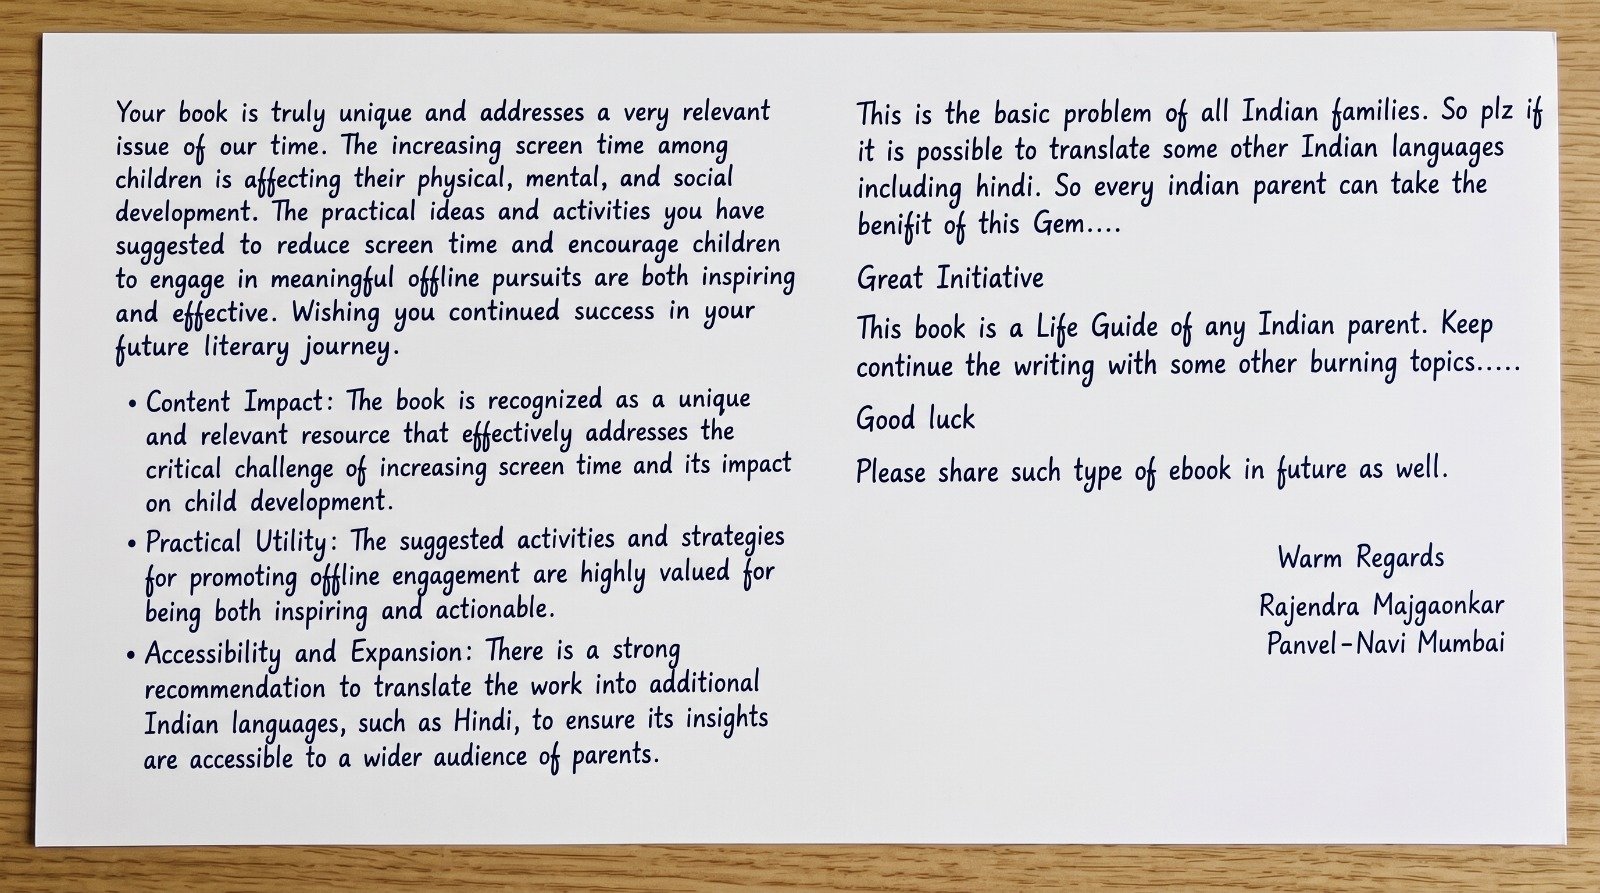 Your book is truly unique and addresses a very relevant
issue of our time. The increasing screen time among
children is affecting their physical, mental, and social
development. The practical ideas and activities you have
suggested to reduce screen time and encourage children
to engage in meaningful offline pursuits are both inspiring
and effective. Wishing you continued success in your
future literary journey.
• Content Impact: The book is recognized as a unique
and relevant resource that effectively addresses the
critical challenge of increasing screen time and its impact
on child development.
• Practical Utility: The suggested activities and strategies
for promoting offline engagement are highly valued for
being both inspiring and actionable.
• Accessibility and Expansion: There is a strong
recommendation to translate the work into additional
Indian languages, such as Hindi, to ensure its insights
are accessible to a wider audience of parents.
This is the basic problem of all Indian families. So plz if
it is possible to translate some other Indian languages
including hindi. So every indian parent can take the
benifit of this Gem....
Great Initiative
This book is a Life Guide of any Indian parent. Keep
continue the writing with some other burning topics.....
Good luck
Please share such type of ebook in future as well.
Warm Regards
Rajendra Majgaonkar
Panvel-Navi Mumbai